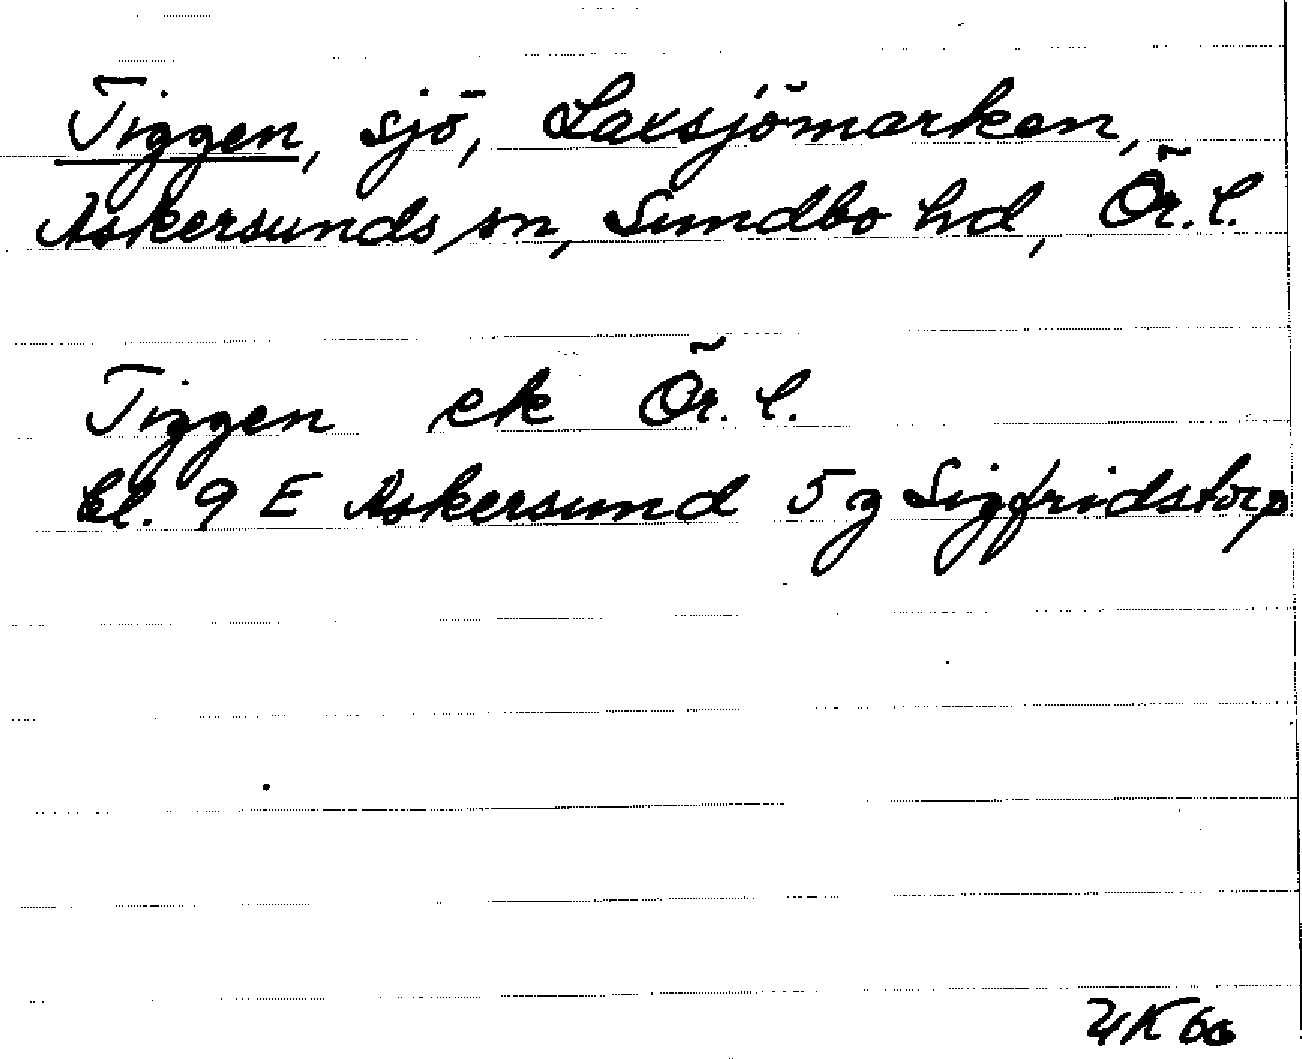 Tiggen, sjö, Laxsjömarken,
Askersunds sn, Sundbo hd, Ör. l.
Tiggen ek Ör. l.
bl. 9 E Askersund 5 g Sigfridstorp